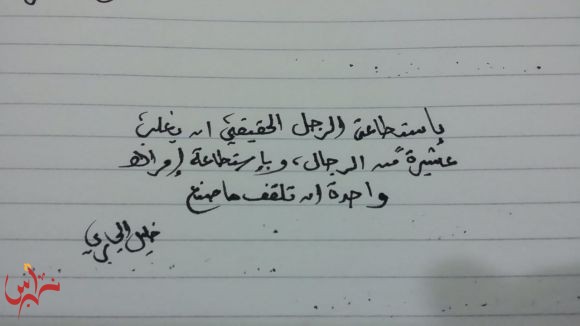 بإستطاعة الرجل الحقيقي ان يغلب
عشيرةً من الرجال، وبإستطاعة إمرأه
واحدة ان تلقف ما صنع
الجابري
نبراس